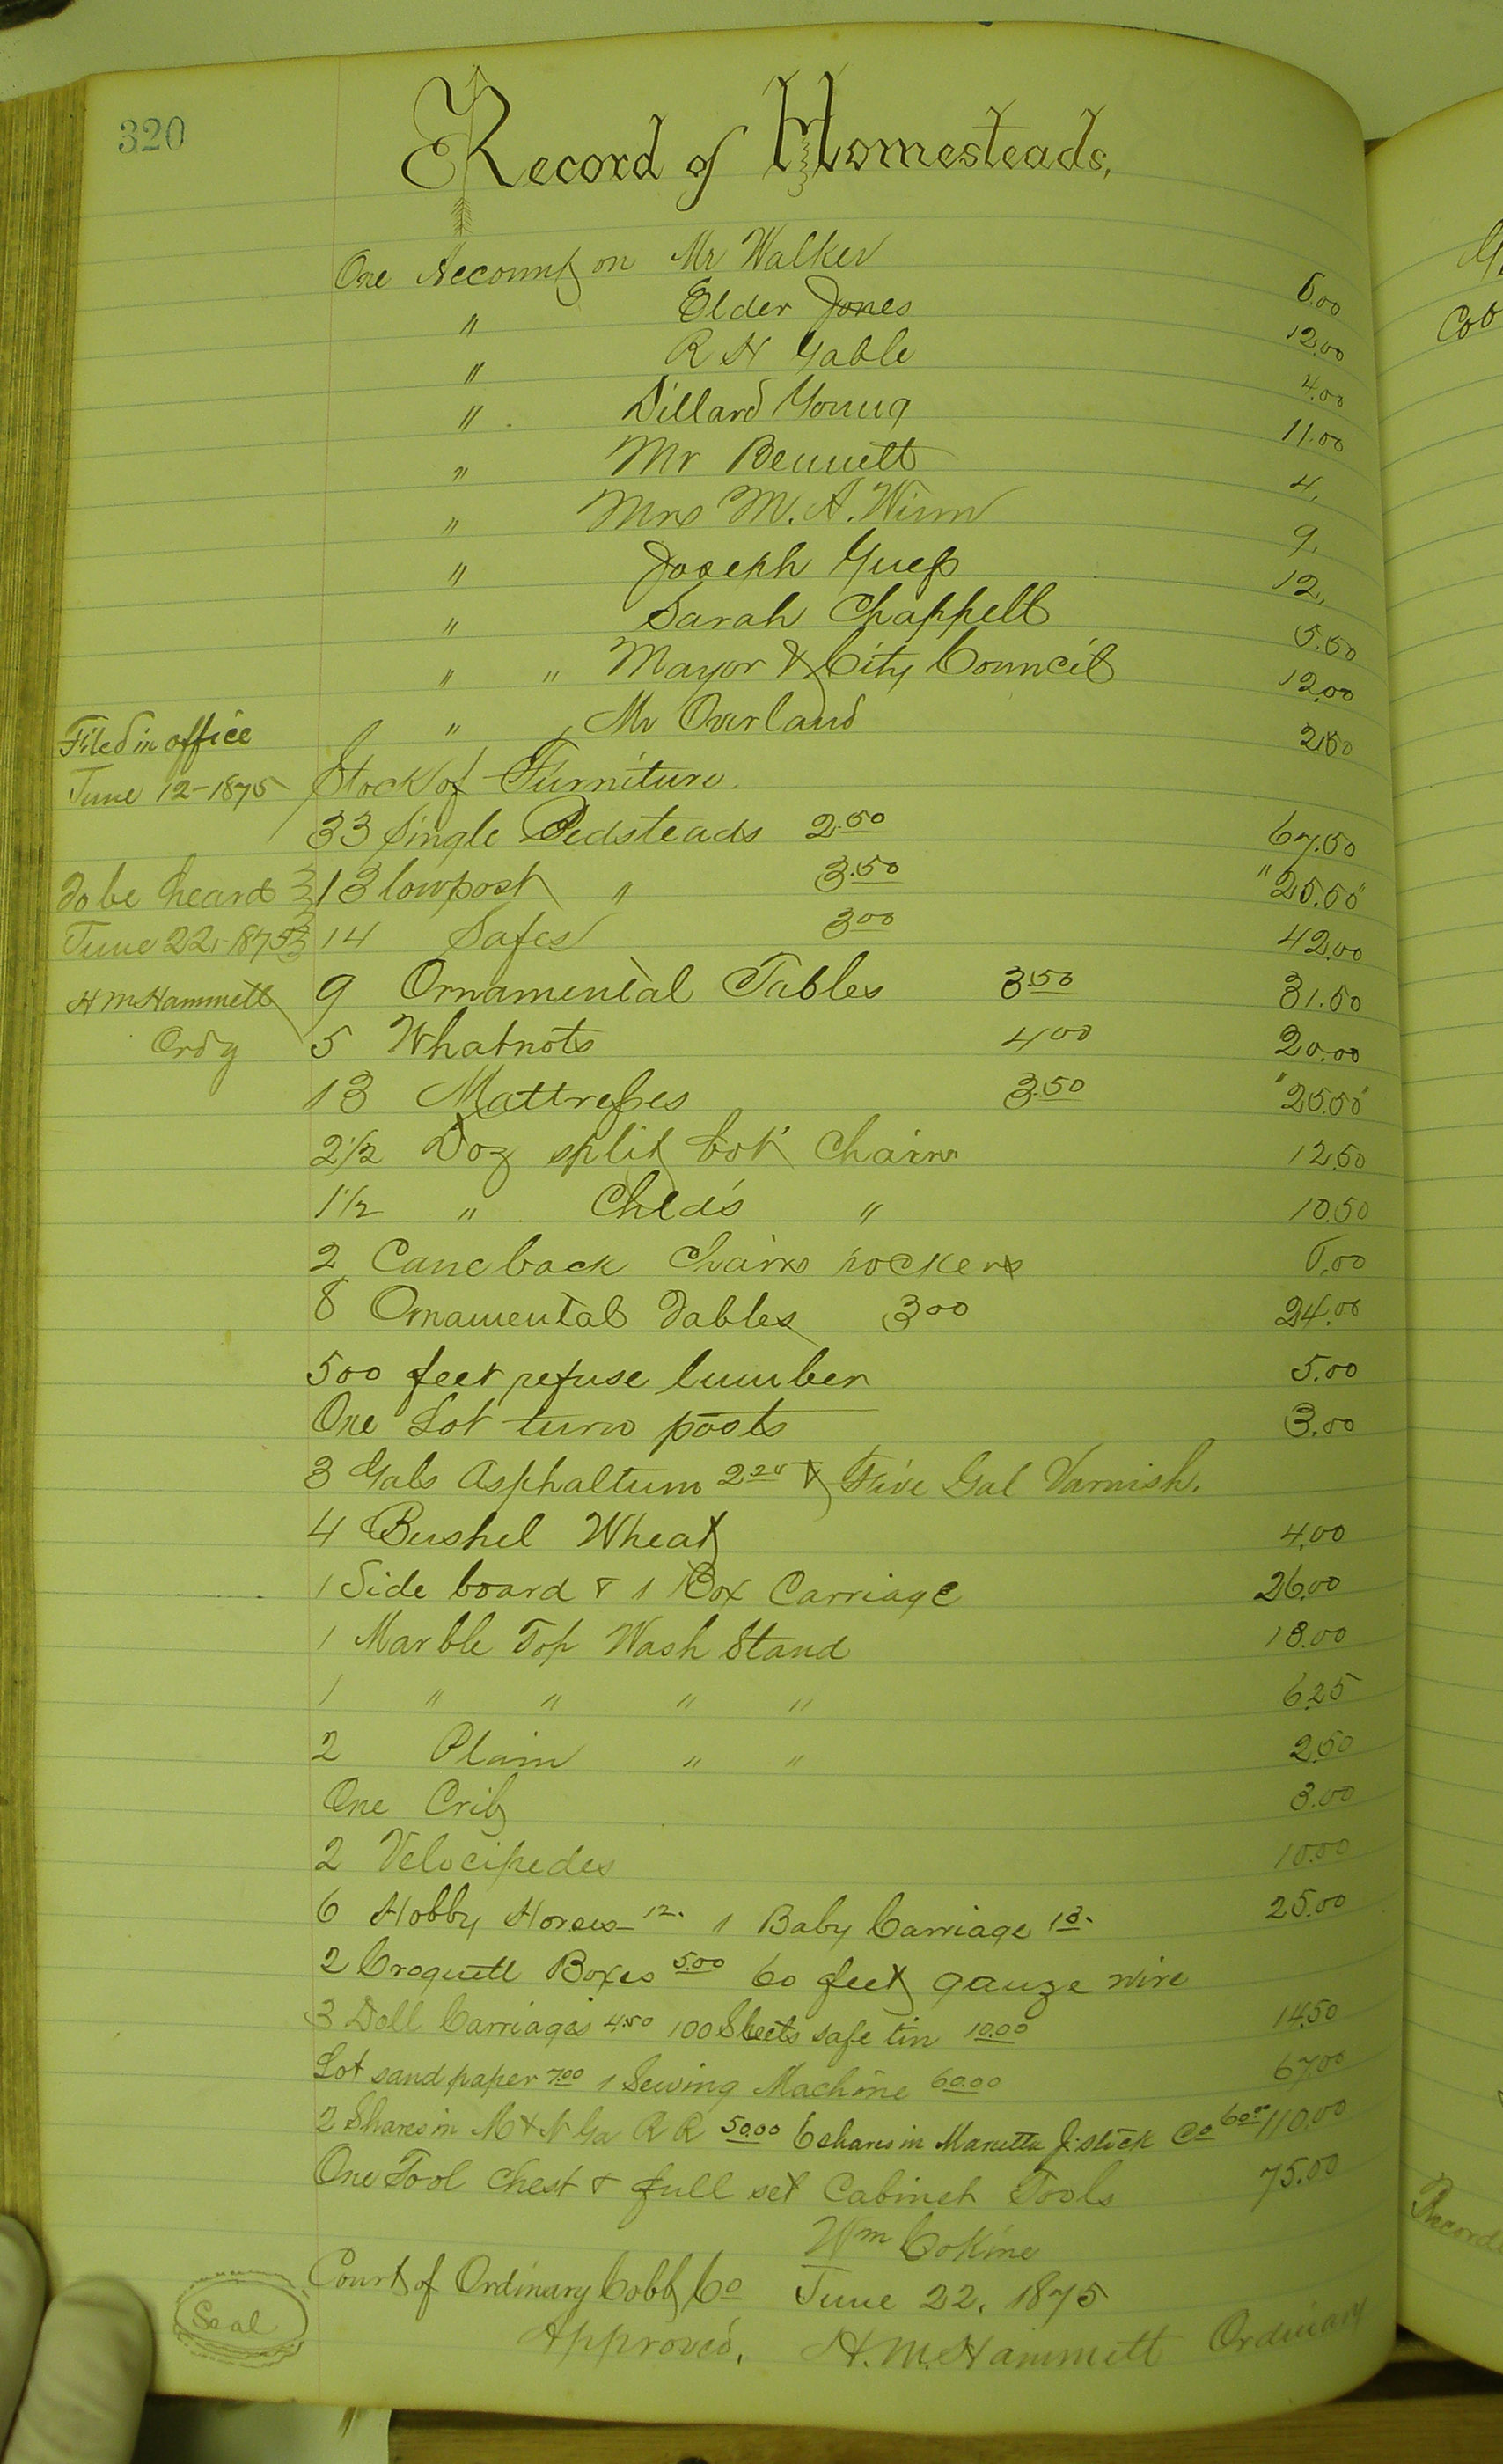 320
Record of Homesteads,
One Account on Mr Walker 6.00
" Elder Jones 12.00
" R N Gable 4.00
" Dillard Young 11.00
" Mr Bennett 4.
" Mrs M. A. Winn 9.
" Joseph Guess 12,
" Sarah Chappell 5.50
" " Mayor & City Council 12.00
" Mr Overland 2.50
Filed in office
June 12-1875
Stock of Furniture.
33 Single Bedsteads 2.50 67.50
To be heard
June 22, 1875
H M Hammett
Ordy
13 low post " 3.50 "25.50"
14 Safes 3.00 42.00
9 Ornamental Tables 3.50 31.50
5 Whatnots 4.00 20.00
13 Mattresses 3.50 "25.50"
2 1/2 Doz split bot Chairs 12.50
1 1/2 " Child's " 10.50
2 Cane back Chairs rockers 6.00
8 Ornamental Tables 3.00 24.00
500 feet refuse lumber 5.00
One Lot turn posts 3.00
3 Gals Asphaltum & Five Gal Varnish.
4 Bushel Wheat 4.00
1 Side board & 1 Box Carriage 26.00
1 Marble Top Wash Stand 18.00
1 " " " " 6.25
2 Plain " " 2.50
One Crib 3.00
2 Velocipedes 10.00
6 Hobby Horses 12. 1 Baby Carriage 13. 25.00
2 Croquett Boxes 5.00 60 feet gauze wire
3 Doll Carriages 4.50 100 Sheets safe tin 10.00 14.50
Lot sand paper 7.00 1 Sewing Machine 60.00 67.00
2 Shares in M & N Ga R R 50.00 6 shares in Marietta J. Stock Co 60.00 110.00
One Tool Chest & full set Cabinet Tools 75.00
Wm Cokine
Court of Ordinary Cobb Co June 22, 1875
Approved, H. M. Hammett Ordinary
Seal